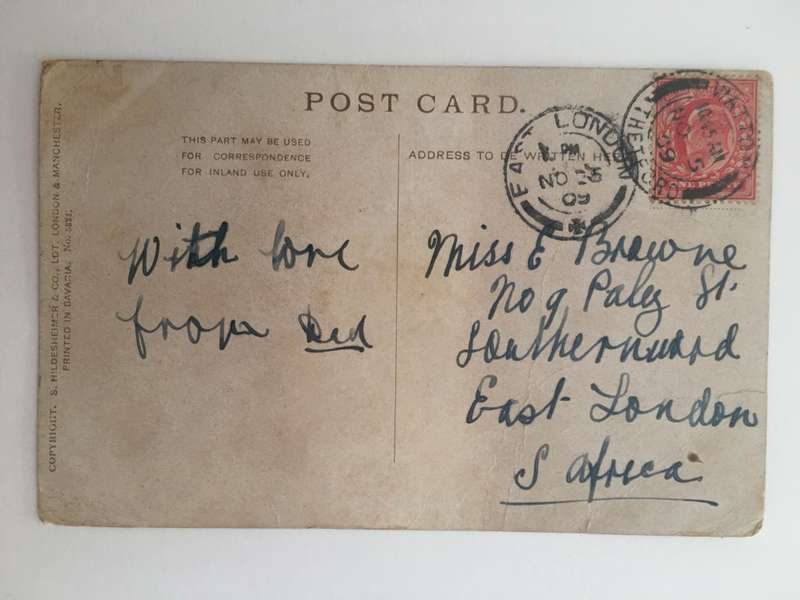 POST CARD.
THIS PART MAY BE USED
FOR CORRESPONDENCE
FOR INLAND USE ONLY.
ADDRESS TO BE WRITTEN HE
EAST LONDON
PM
NO 25
09
WATTON
THETFORD
10.45 AM
NO 5
09
With love
from
Miss E Browne
No 9 Paley St.
Southernward
East London
S Africa
COPYRIGHT. S. HILDESHEIMER & CO., LDT. LONDON & MANCHESTER.
PRINTED IN BAVARIA. No.